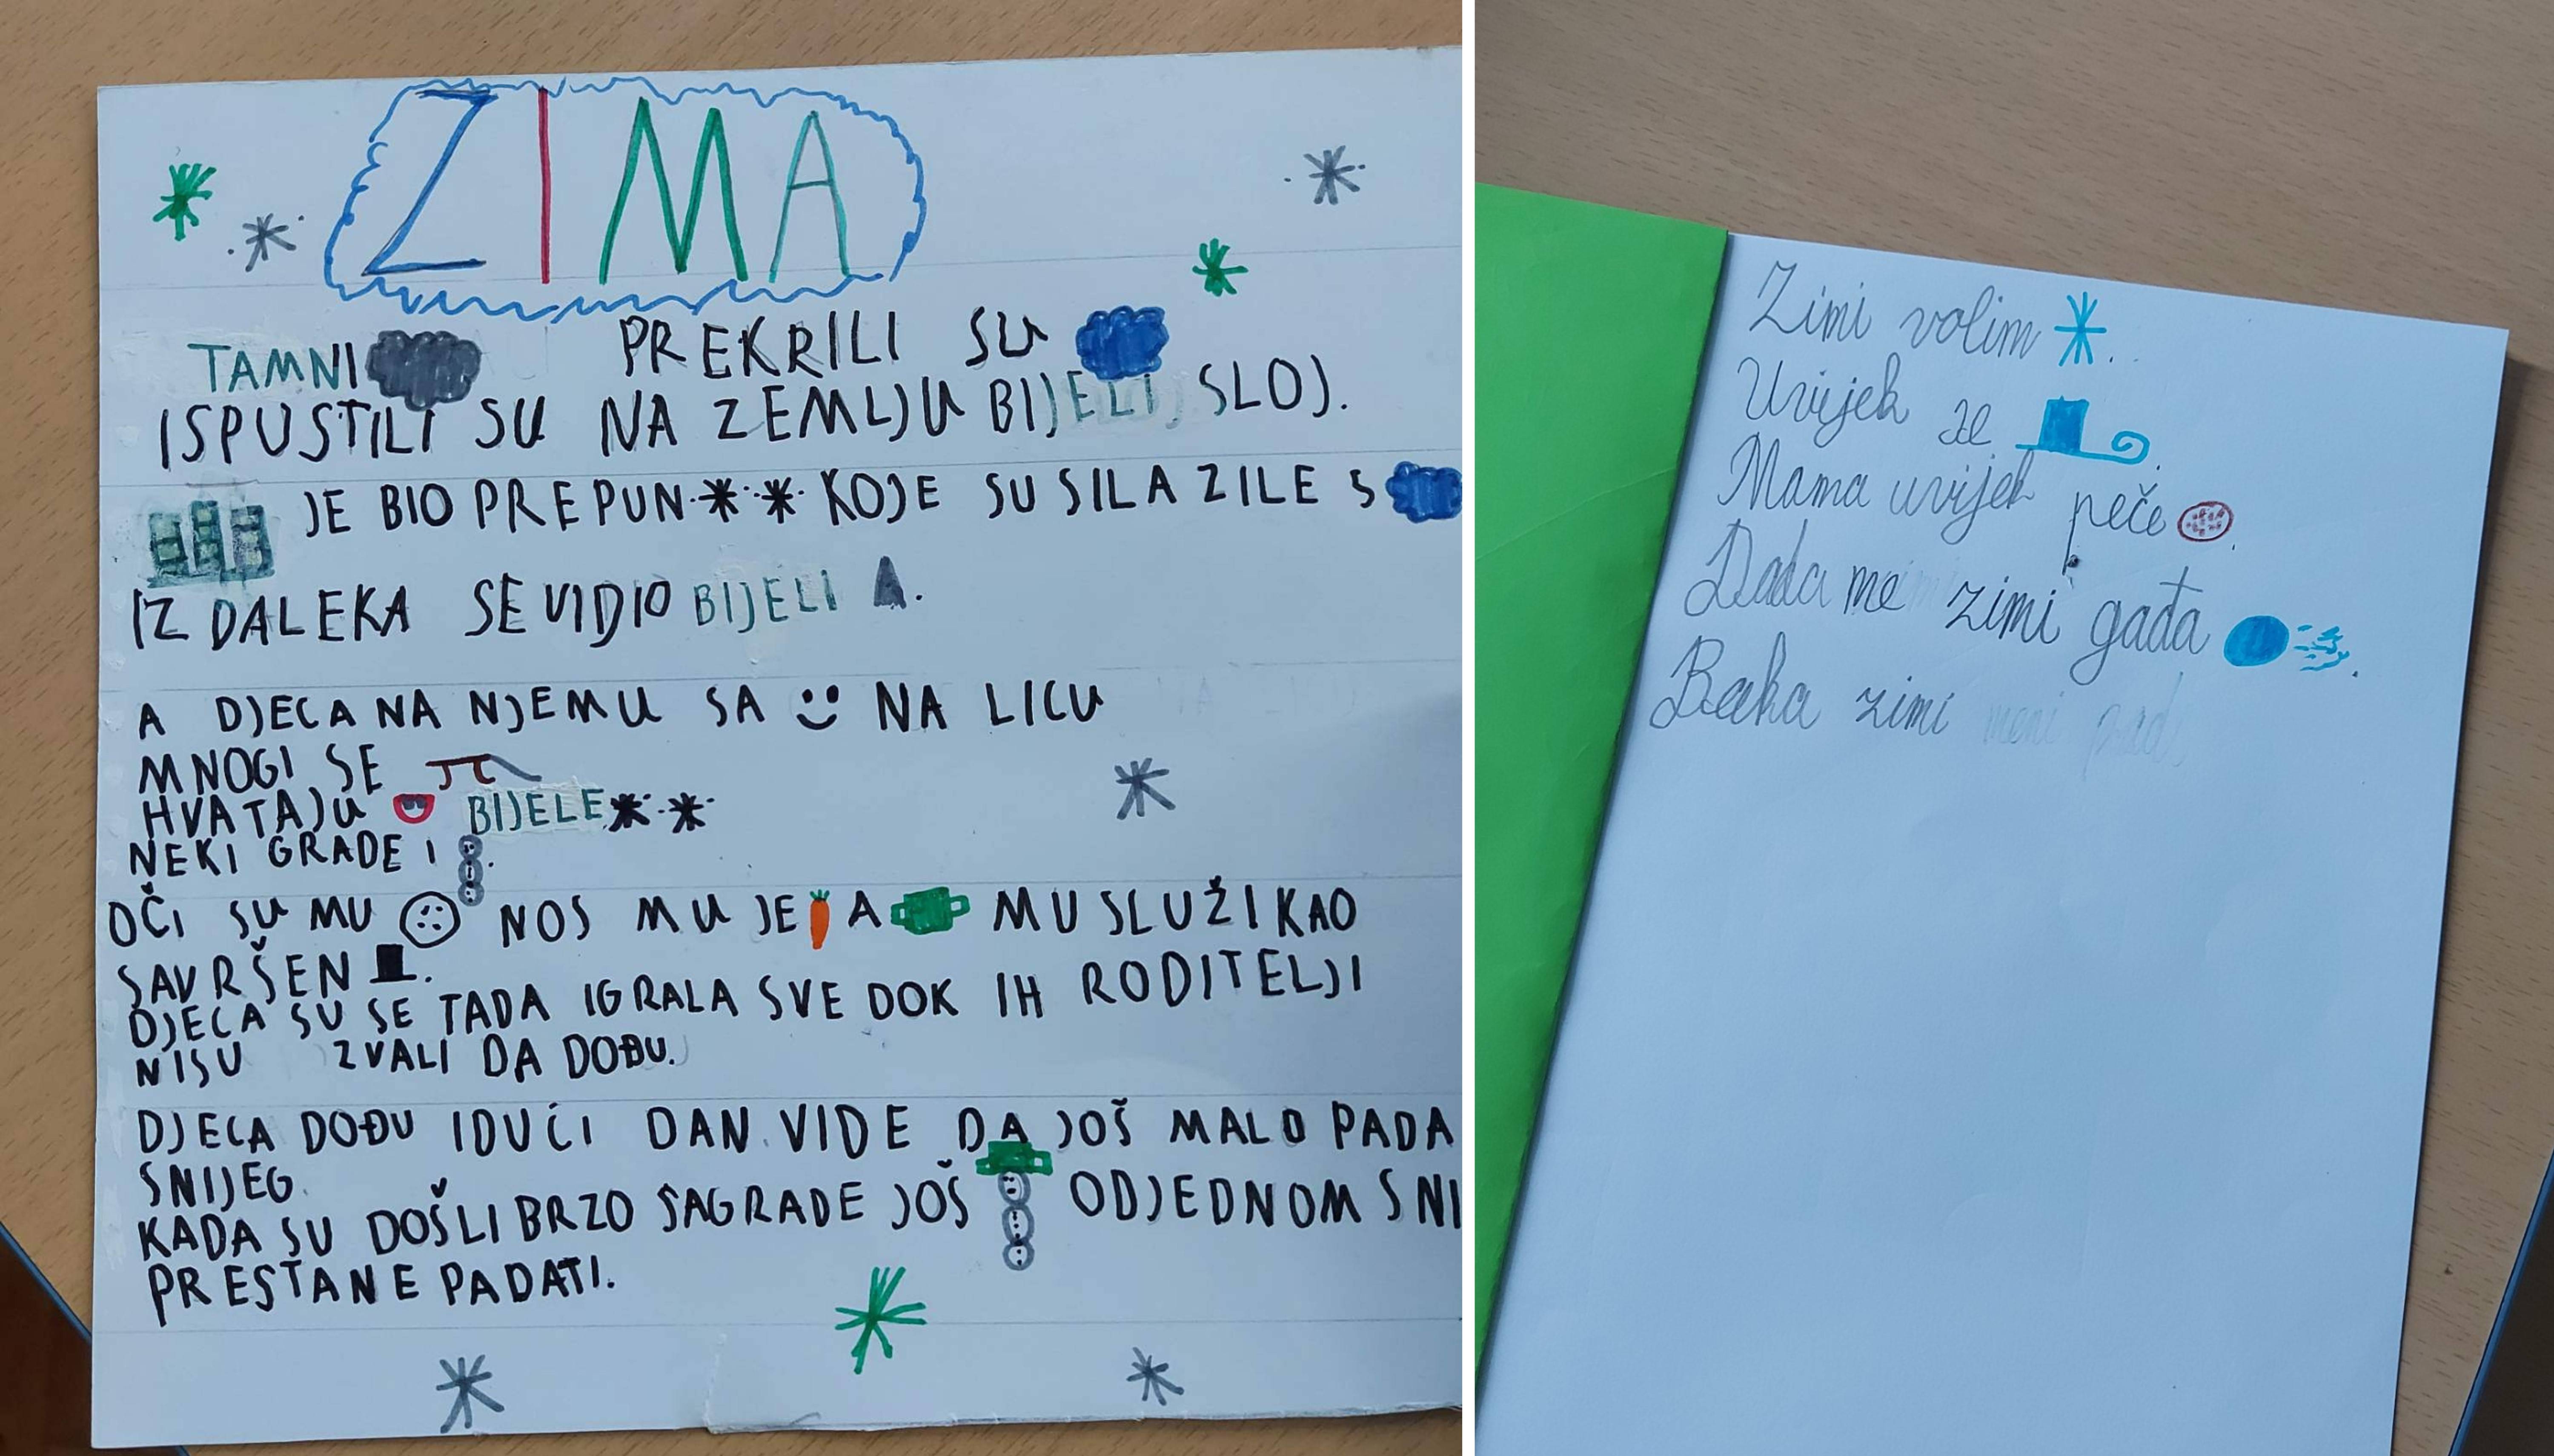 ZIMA
TAMNI PREKRILI SU
ISPUSTILI SU NA ZEMLJU BIJELI SLOJ.
JE BIO PREPUN KOJE SU SILAZILE S
IZ DALEKA SE VIDIO BIJELI .
A DJECA NA NJEMU SA NA LICU
MNOGI SE
HVATAJU BIJELE
NEKI GRADE I .
OČI SU MU NOS MU JE A MU SLUŽI KAO
SAVRŠEN .
DJECA SU SE TADA IGRALA SVE DOK IH RODITELJI
NISU ZVALI DA DOĐU.
DJECA DOĐU IDUĆI DAN VIDE DA JOŠ MALO PADA
SNIJEG.
KADA SU DOŠLI BRZO SAGRADE JOŠ ODJEDNOM SNI
PRESTANE PADATI.
Zimi volim .
Uvijek se .
Mama uvijek peče .
Dada me zimi gađa .
Baka zimi